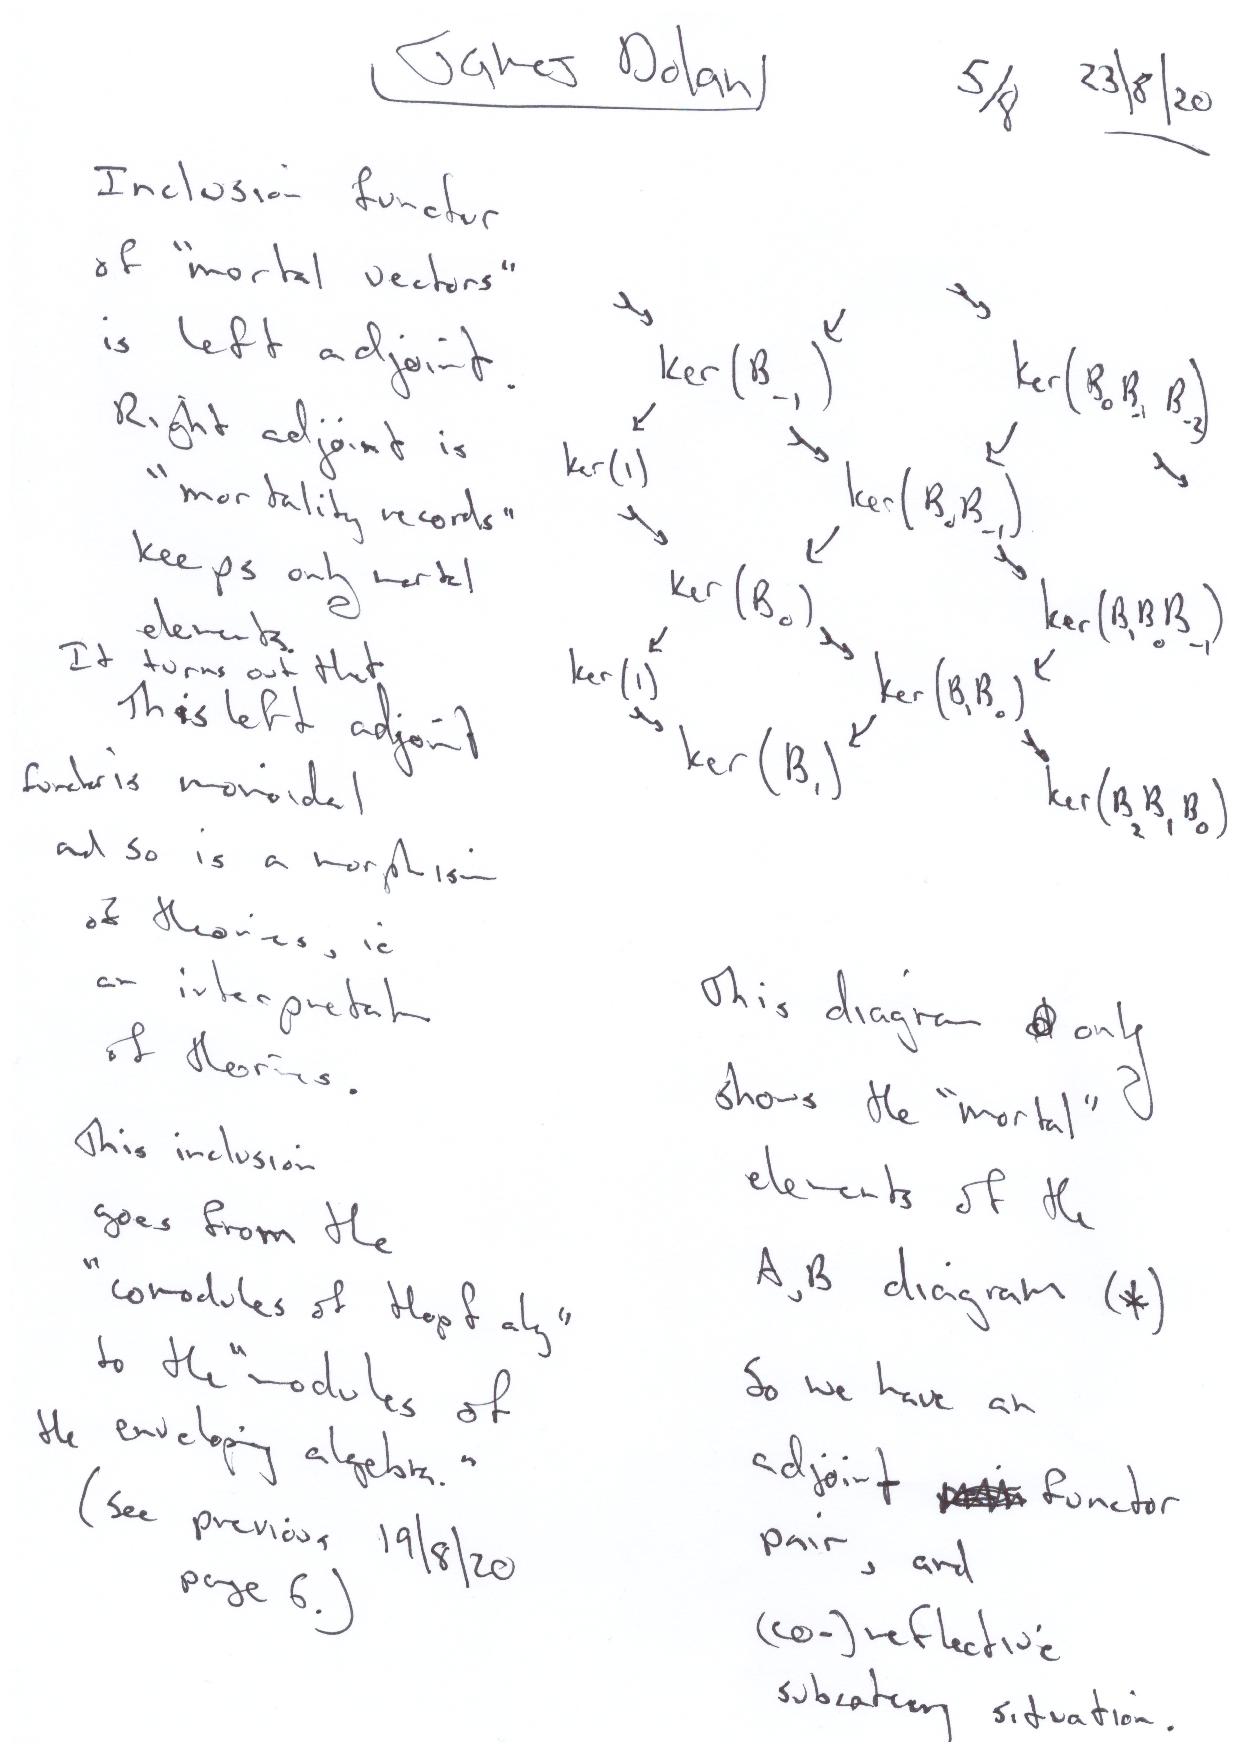 James Dolan
5/8 23/8/20
Inclusion functor
of "mortal vectors"
is left adjoint.
Right adjoint is
"mortality records"
keeps only mortal
elements.
It turns out that
This left adjoint
functor is monoidal
and so is a morphism
of theories, ie
an interpretatn
of theories.
This inclusion
goes from the
"comodules of Hopf alg"
to the "modules of
the enveloping algebra."
(see previous 19/8/20
page 6.)
ker(B₋₁) ker(B₀B₋₁B₋₂)
ker(1) ker(B₀B₋₁)
ker(B₀) ker(B₁B₀B₋₁)
ker(1) ker(B₁B₀)
ker(B₁) ker(B₂B₁B₀)
This diagram only
shows the "mortal"
elements of the
A,B diagram (*)
So we have an
adjoint functor
pair, and
(co-)reflective
subcategory situation.